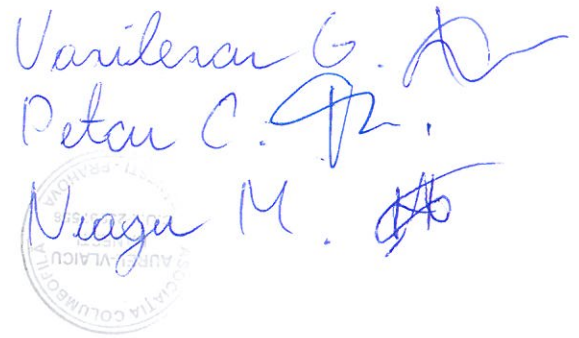 Vasilescu G.
Petcu C.
Neagu M.
ASOCIATIA COLUMBOFILA
AUREL-VLAICU
PRAHOVA